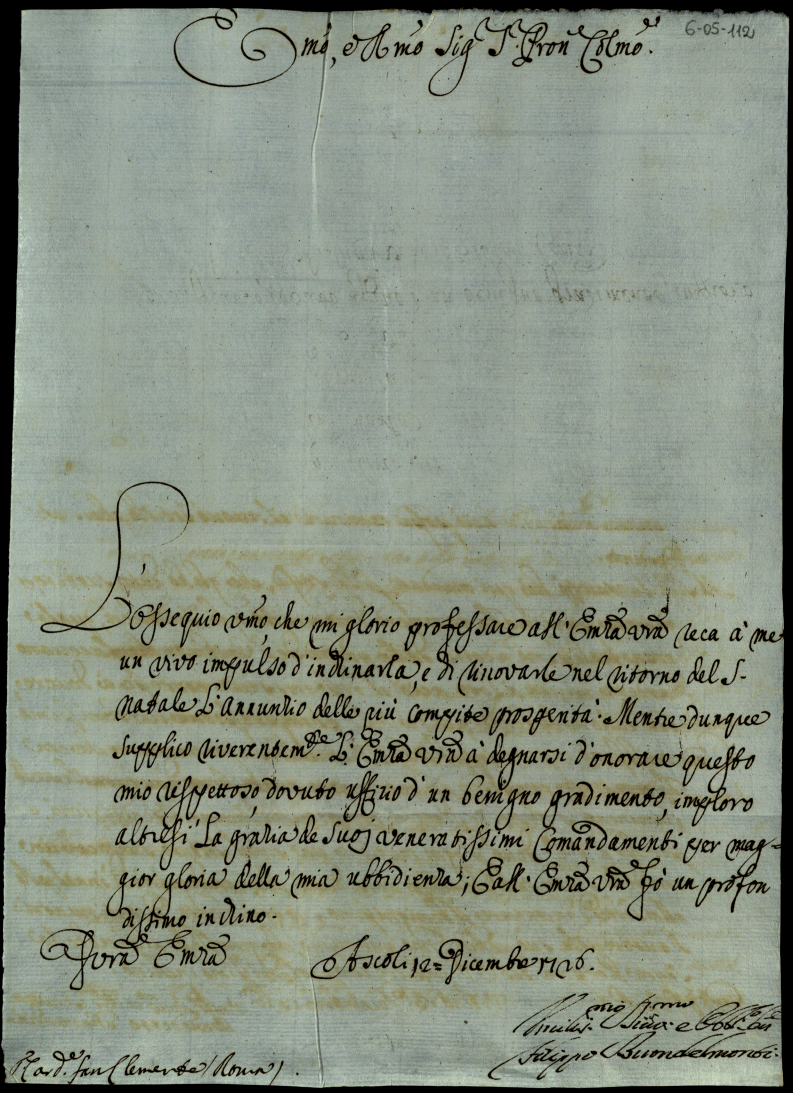 6-05-112
Emo, e Rmo Sigr Sr Pron Colmo.
L'ossequio vmo, che mi glorio professare all'Emza Vra reca à me
un vivo impulso d'inclinarla, e di rinovarle nel ritorno del S.
Natale L'Annunzio delle più compite prosperità. Mentre dunque
supplico riverentemte L'Emza Vra à degnarsi d'onorare questo
mio rispettoso, dovuto uffizio d'un benigno gradimento, imploro
altresì La grazia de suoj veneratissimi Comandamenti per mag=
gior gloria della mia ubbidienza; E all'Emza Vra fò un profon
dissimo inclino.
Di Vra Emza
Ascoli 12= Dicembre 1726.
Umilmo Divmo e Obblmo
Filippo Buondelmonti.
Card.e San Clemente (Roma).